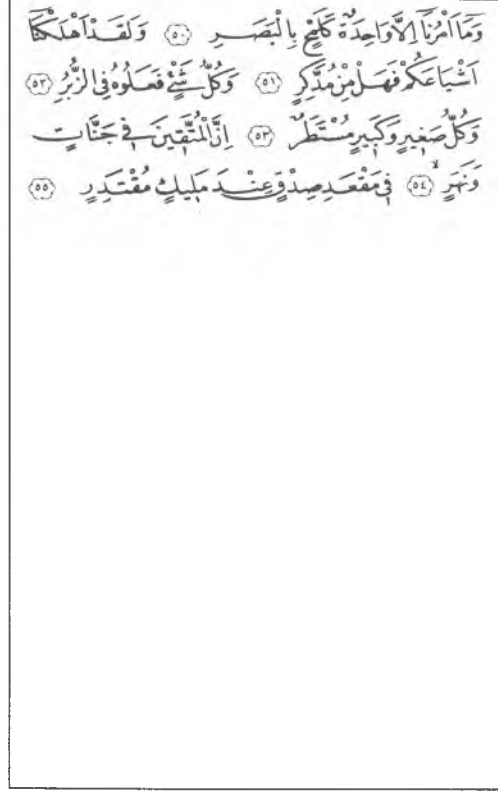 وَمَٓا اَمْرُنَٓا اِلَّا وَاحِدَةٌ كَلَمْحٍ بِالْبَصَرِ ﴿٥٠﴾ وَلَقَدْ اَهْلَكْنَٓا
اَشْيَاعَكُمْ فَهَلْ مِنْ مُدَّكِرٍ ﴿٥١﴾ وَكُلُّ شَيْءٍ فَعَلُوهُ فِي الزُّبُرِ ﴿٥٢﴾
وَكُلُّ صَغِيرٍ وَكَبِيرٍ مُسْتَطَرٌ ﴿٥٣﴾ اِنَّ الْمُتَّقِينَ فِي جَنَّاتٍ
وَنَهَرٍۙ ﴿٥٤﴾ فِي مَقْعَدِ صِدْقٍ عِنْدَ مَلِيكٍ مُقْتَدِرٍ ﴿٥٥﴾